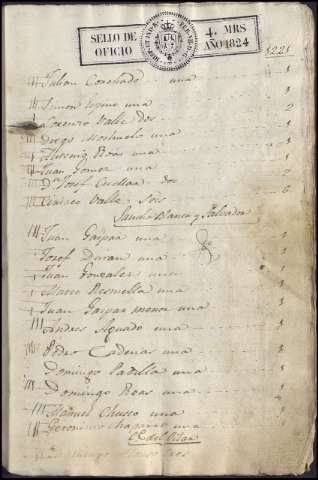 SELLO DE OFICIO
4. MRS AÑO 1824
1221
Julian Conchado una 1
Simon Espino una 1
Lorenzo Valle dos 2
Diego Mochuelo una 1
Antonio Roas una 1
Juan Gomez una 1
Dn Josef Cuellar dos 2
Ciriaco Valle Seis 6
Blanca y Salvador
Juan Gaspar una 1
Josef Duran una 1
Juan Gonzalez una 1
Mateo Resmella una 1
Juan Gaspar menor una 1
Andres Aguado una 1
Pedro Cadenas una 1
Domingo Padilla una 1
Domingo Roas una 1
Manuel Chusco una 1
Geronimo Chaparro una 1
Ce del Pilar